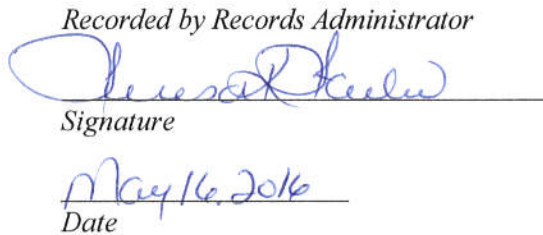 Recorded by Records Administrator
Signature
May 16, 2016
Date